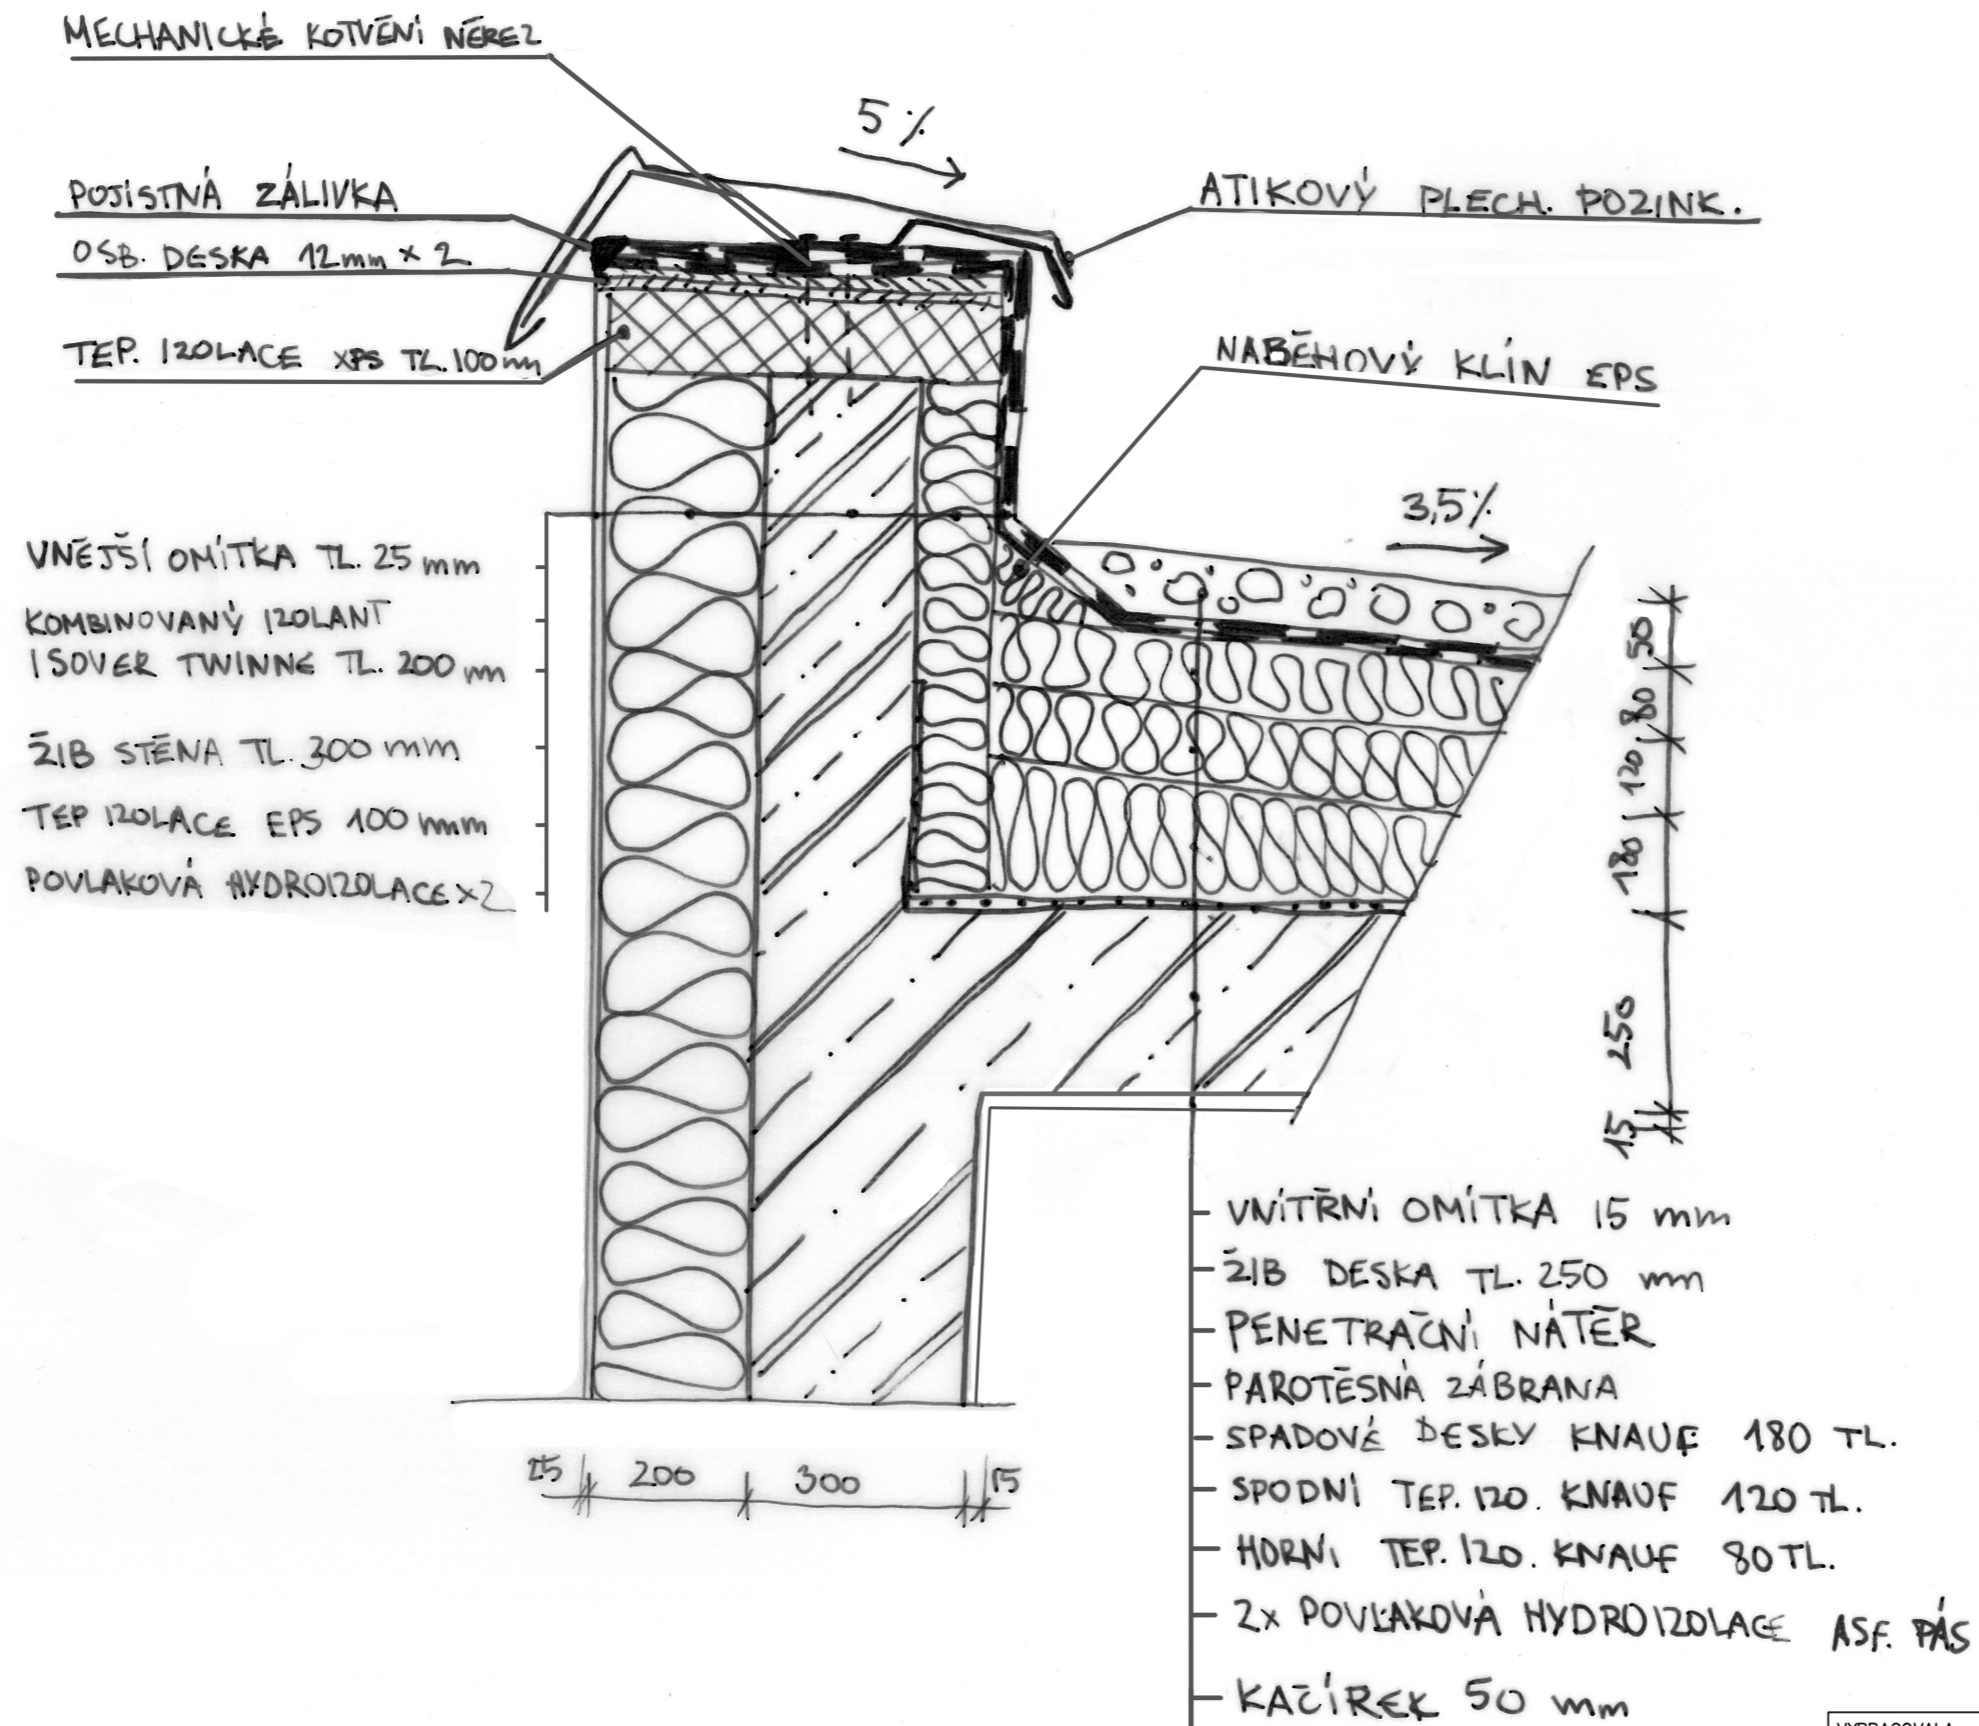 MECHANICKÉ KOTVENÍ NEREZ
5%
POJISTNÁ ZÁLIVKA
OSB. DESKA 12mm x 2
TEP. IZOLACE XPS TL. 100mm
ATIKOVÝ PLECH. POZINK.
NABĚHOVÝ KLÍN EPS
3,5%
VNĚJŠÍ OMÍTKA TL. 25 mm
KOMBINOVANÝ IZOLANT
ISOVER TWINNE TL. 200 mm
ŽIB STĚNA TL. 300 mm
TEP IZOLACE EPS 100 mm
POVLAKOVÁ HYDROIZOLACE x2
50
80
120
180
250
15
25 200 300 15
VNITŘNÍ OMÍTKA 15 mm
ŽIB DESKA TL. 250 mm
PENETRAČNÍ NÁTĚR
PAROTĚSNÁ ZÁBRANA
SPADOVÉ DESKY KNAUF 180 TL.
SPODNÍ TEP. IZO. KNAUF 120 TL.
HORNI TEP. IZO. KNAUF 80 TL.
2x POVLAKOVÁ HYDROIZOLACE ASF. PÁS
KAČÍREK 50 mm